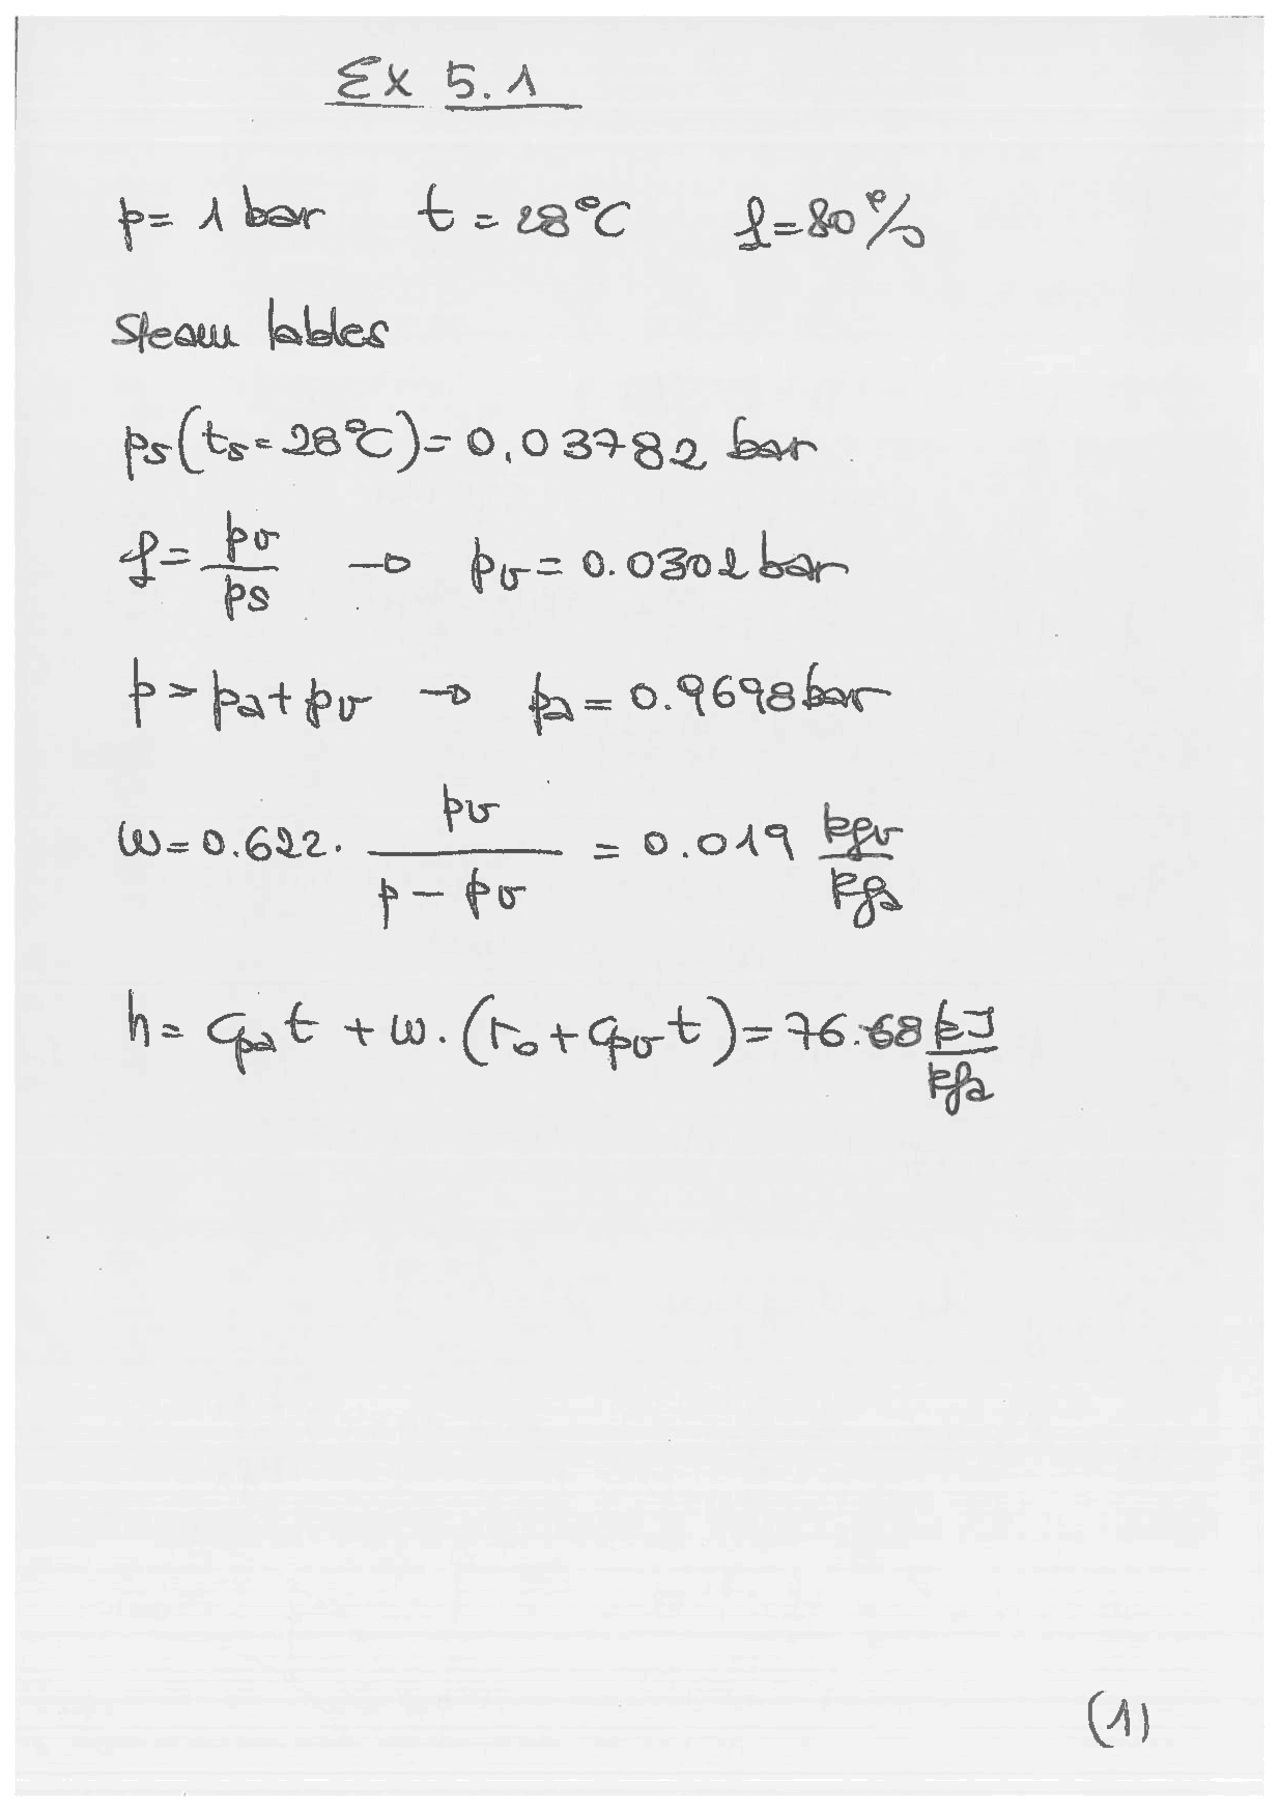 Ex 5.1
p = 1 bar t = 28°C f = 80%
Steam tables
ps (ts = 28°C) = 0.03782 bar
f = pv/ps → pv = 0.0302 bar
p = pa + pv → pa = 0.9698 bar
w = 0.622 · pv/(p − pv) = 0.019 kgv/kga
h = cpa t + w · (r0 + cpv t) = 76.68 kJ/kga
(1)